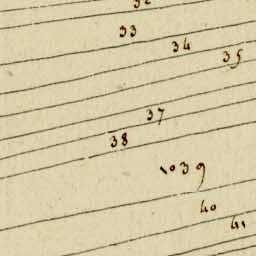 32
33
34
35
37
38
1039
40
41